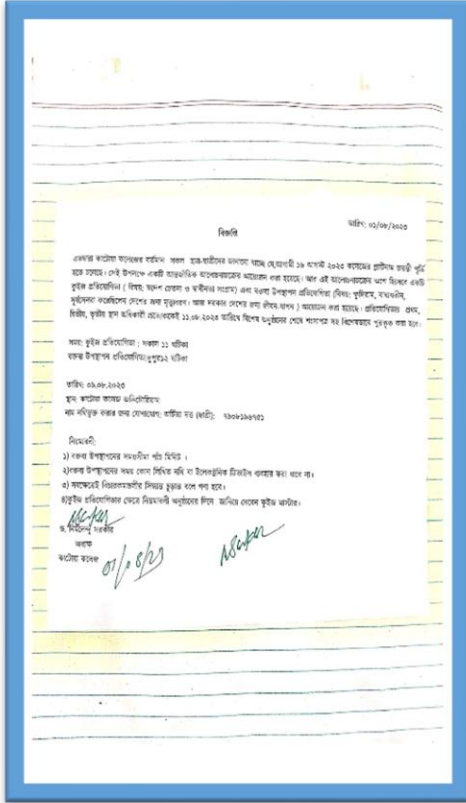 তারিখ: ০১/০৮/২০২৩
বিজ্ঞপ্তি
এতদ্বারা কাটোয়া কলেজের বর্তমান সকল ছাত্র-ছাত্রীদের জানানো যাচ্ছে যে,আগামী ১৬ আগস্ট ২০২৩ কলেজের প্লাটিনাম জয়ন্তী পূর্তি
হতে চলেছে। সেই উপলক্ষে একটি আন্তর্জাতিক আলোচনাচক্রের আয়োজন করা হয়েছে। আর এই আলোচনাচক্রের অংশ হিসেবে একটি
কুইজ প্রতিযোগিতা ( বিষয়: স্বদেশ চেতনা ও স্বাধীনতা সংগ্রাম) এবং বক্তব্য উপস্থাপন প্রতিযোগিতা (বিষয়: ক্ষুদিরাম, বাঘাযতীন,
সূর্যসেনরা করেছিলেন দেশের জন্য মৃত্যুবরণ। আজ দরকার দেশের জন্য জীবন-যাপন ) আয়োজন করা হয়েছে। প্রতিযোগিতায় প্রথম,
দ্বিতীয়, তৃতীয় স্থান অধিকারী প্রত্যেককেই ১১.০৮.২০২৩ তারিখে বিশেষ অনুষ্ঠানের শেষে শংসাপত্র সহ বিশেষভাবে পুরস্কৃত করা হবে।
সময়: কুইজ প্রতিযোগিতা : সকাল ১১ ঘটিকা
বক্তব্য উপস্থাপন প্রতিযোগিতা:দুপুর১২ ঘটিকা
তারিখ: ০৯.০৮.২০২৩
স্থান: কাটোয়া কলেজ অডিটোরিয়াম।
নাম নথিভুক্ত করার জন্য যোগাযোগ: দত্ত (ছাত্রী):
নিয়মাবলী:
১) বক্তব্য উপস্থাপনের সময়সীমা পাঁচ মিনিট ।
২)বক্তব্য উপস্থাপনের সময় কোন লিখিত নথি বা ইলেকট্রনিক ডিভাইস ব্যবহার করা যাবে না।
৩) সবক্ষেত্রেই বিচারকমণ্ডলীর সিদ্ধান্ত চূড়ান্ত বলে গণ্য হবে।
৪)কুইজ প্রতিযোগিতার ক্ষেত্রে নিয়মাবলী অনুষ্ঠানের দিনে জানিয়ে দেবেন কুইজ মাস্টার।
ড. নির্মলেন্দু সরকার
অধ্যক্ষ
কাটোয়া কলেজ
01/08/23